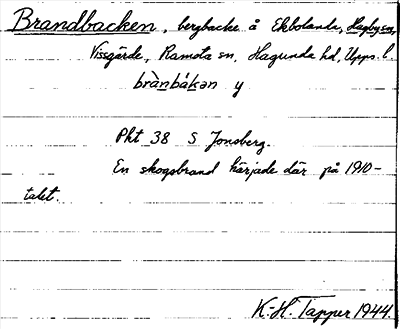 Brandbacken, bergbacke å Ekbolanda, Hagby sn,
Vissgärde, Ramsta sn, Hagunda hd, Upps. l.
brànbákan y
Pht 38 S Jonsberg.
En skogsbrand härjade där på 1910-
talet.
K.-H. Tapper 1944.